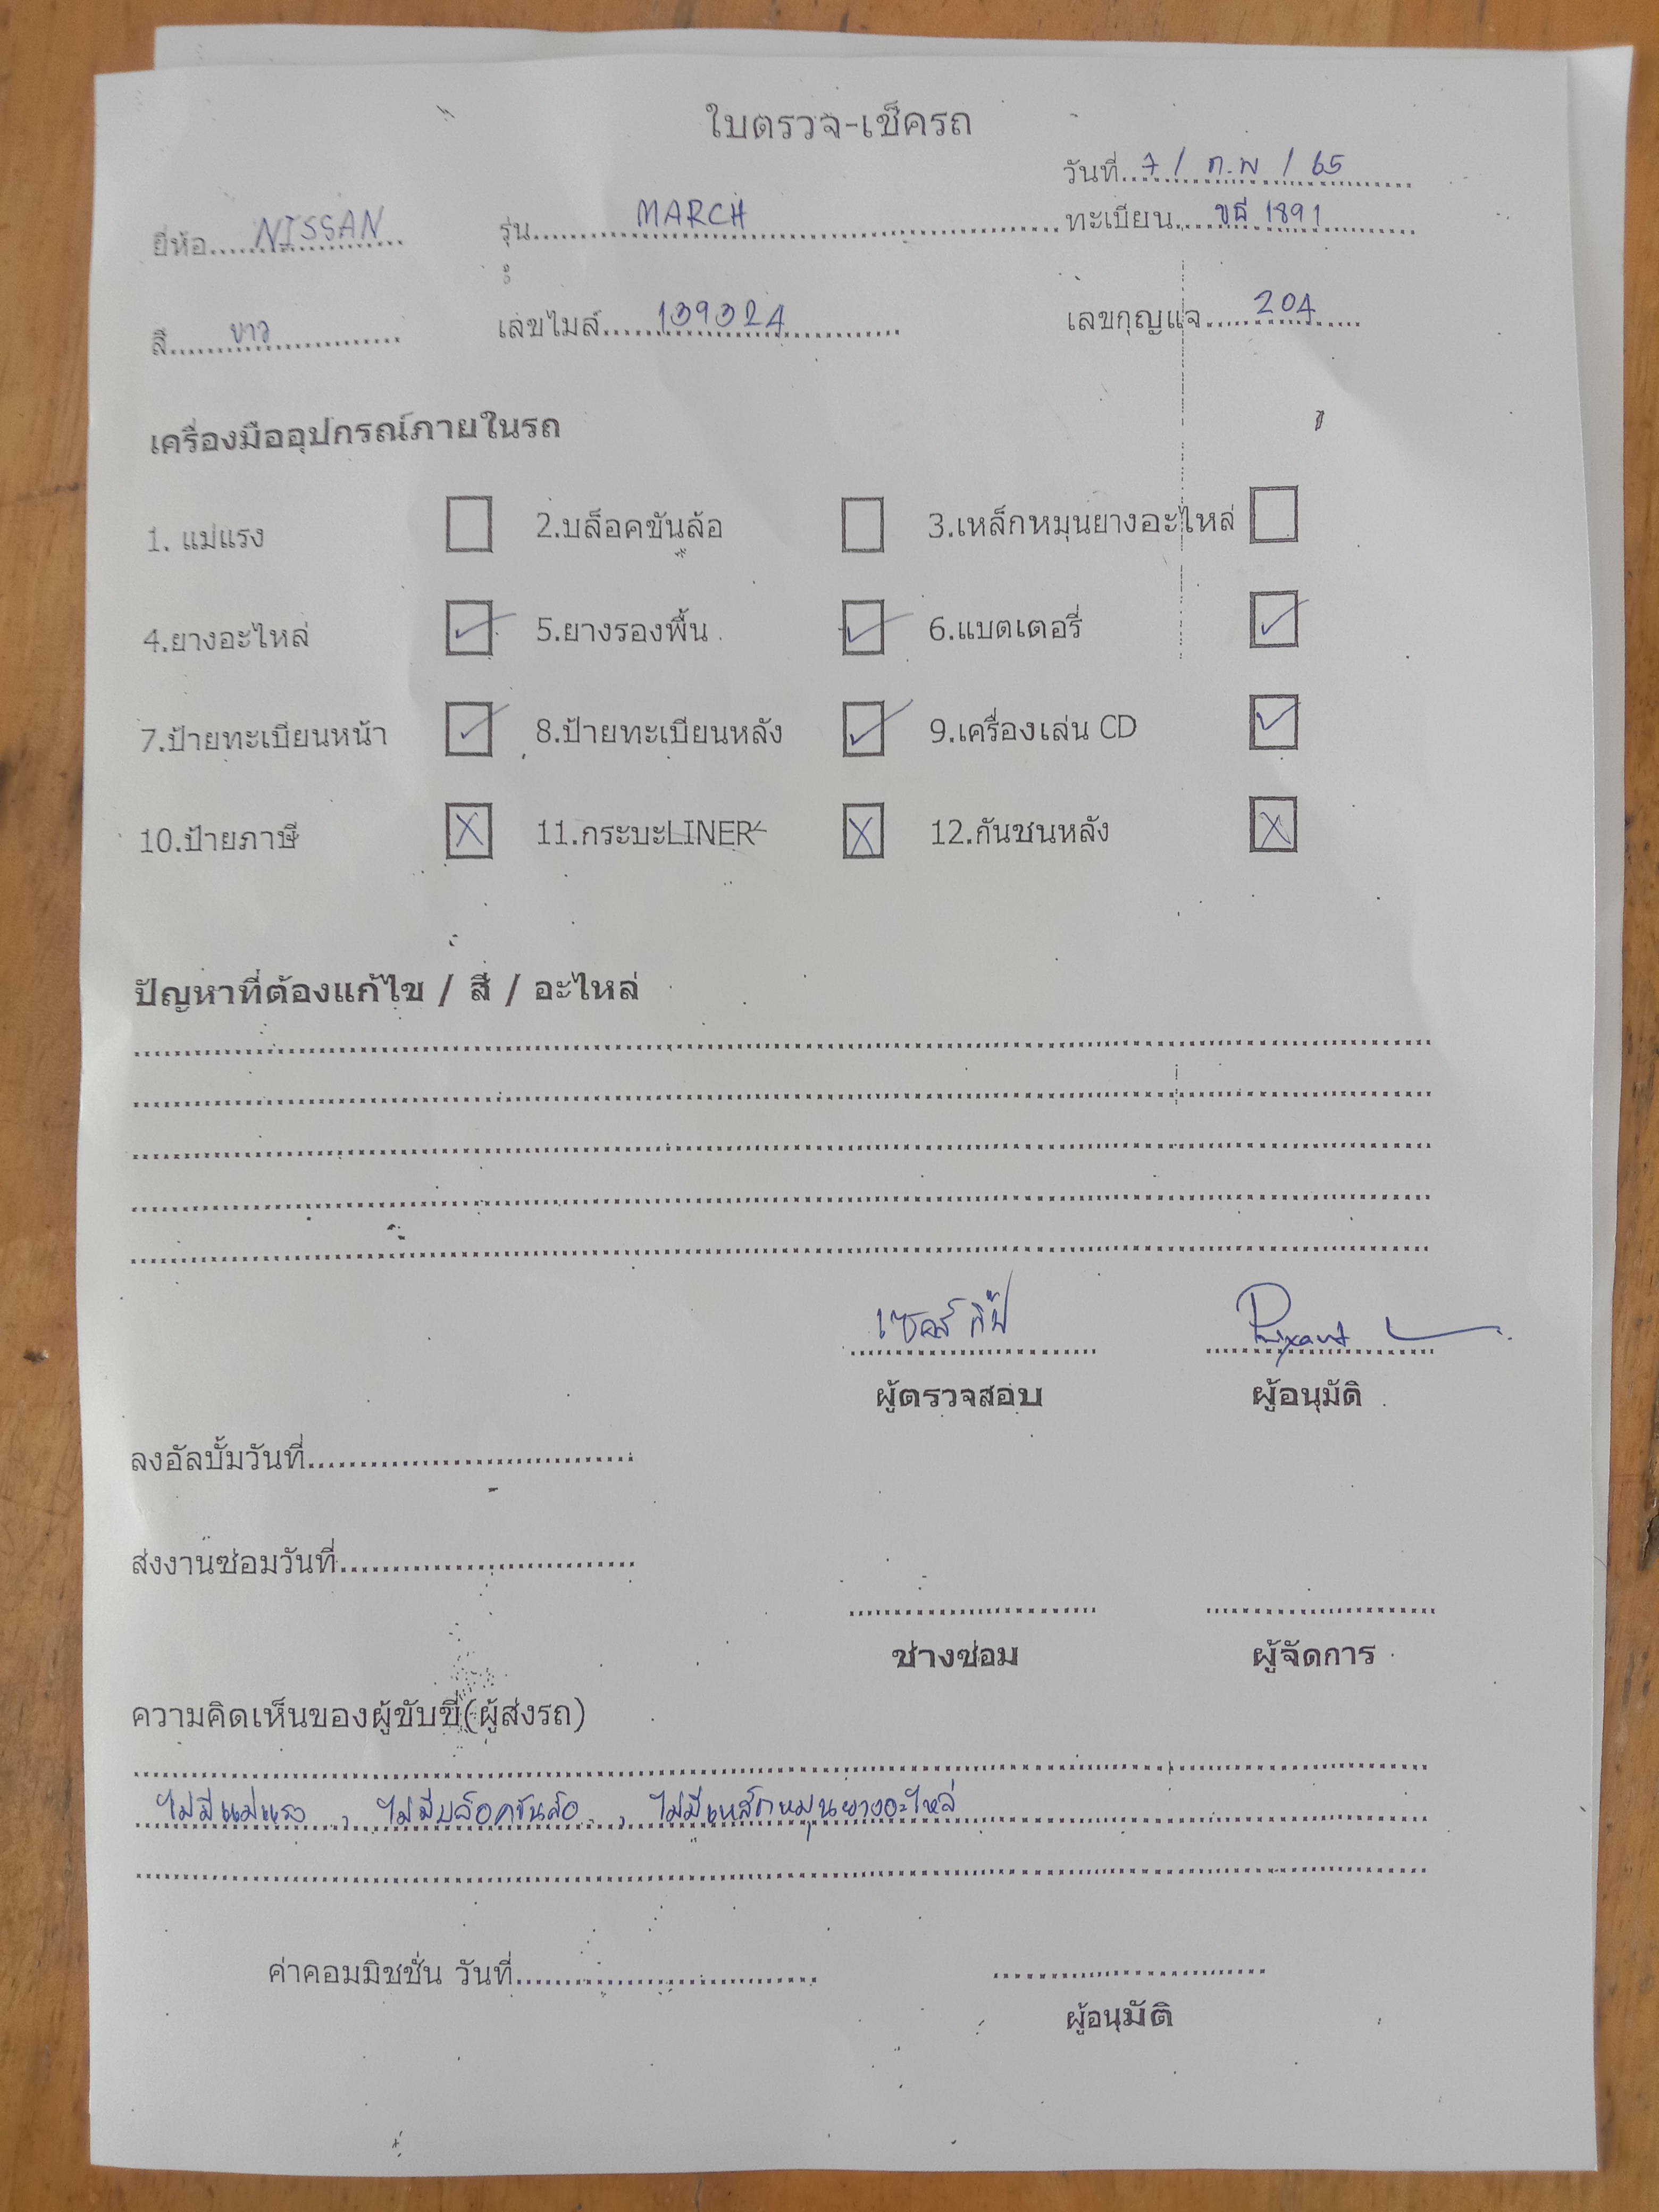 ใบตรวจ-เช็ครถ
วันที่ 7 / ก.พ / 65
ยี่ห้อ NISSAN รุ่น MARCH ทะเบียน 1891
สี ขาว เลขไมล์ 139324 เลขกุญแจ 204
เครื่องมืออุปกรณ์ภายในรถ
1. แม่แรง 2.บล็อคขันล้อ 3.เหล็กหมุนยางอะไหล่
4.ยางอะไหล่ 5.ยางรองพื้น 6.แบตเตอรี่
7.ป้ายทะเบียนหน้า 8.ป้ายทะเบียนหลัง 9.เครื่องเล่น CD
10.ป้ายภาษี 11.กระบะLINER 12.กันชนหลัง
ปัญหาที่ต้องแก้ไข / สี / อะไหล่
เซลส์
ผู้ตรวจสอบ ผู้อนุมัติ
ลงอัลบั้มวันที่
ส่งงานซ่อมวันที่
ช่างซ่อม ผู้จัดการ
ความคิดเห็นของผู้ขับขี่(ผู้ส่งรถ)
ไม่มีแม่แรง , ไม่มีบล็อคขันล้อ , ไม่มีเหล็กหมุนยางอะไหล่
ค่าคอมมิชชั่น วันที่
ผู้อนุมัติ